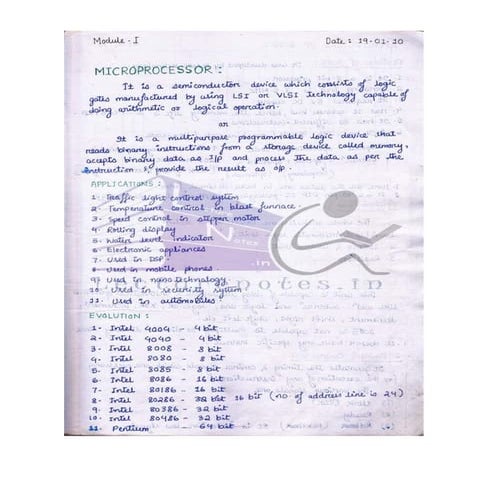 Module - I Date : 19-01-10
MICROPROCESSOR :
It is a semiconductor device which consists of logic
gates manufactured by using LSI or VLSI technology capable of
doing arithmetic or logical operation.
or
It is a multipurpose programmable logic device that
reads binary instructions from a storage device called memory,
accepts binary data as I/P and process the data as per the
instruction & provide the result as O/P.
APPLICATIONS :
1- Traffic light control system
2- Temperature control in blast furnace.
3- Speed control in stepper motor
4- Rolling display
5- Water level indicator
6- Electronic appliances
7- Used in DSP.
8- Used in mobile phones
9- Used in nanotechnology
10- Used in security system
11- Used in automobiles
Notes
.in
notes.in
EVOLUTION :
1- Intel 4004 - 4 bit
2- Intel 4040 - 4 bit
3- Intel 8008 - 8 bit
4- Intel 8080 - 8 bit
5- Intel 8085 - 8 bit
6- Intel 8086 - 16 bit
7- Intel 80186 - 16 bit
8- Intel 80286 - 16 bit (no. of address line is 24)
9- Intel 80386 - 32 bit
10- Intel 80486 - 32 bit
11- Pentium - 64 bit